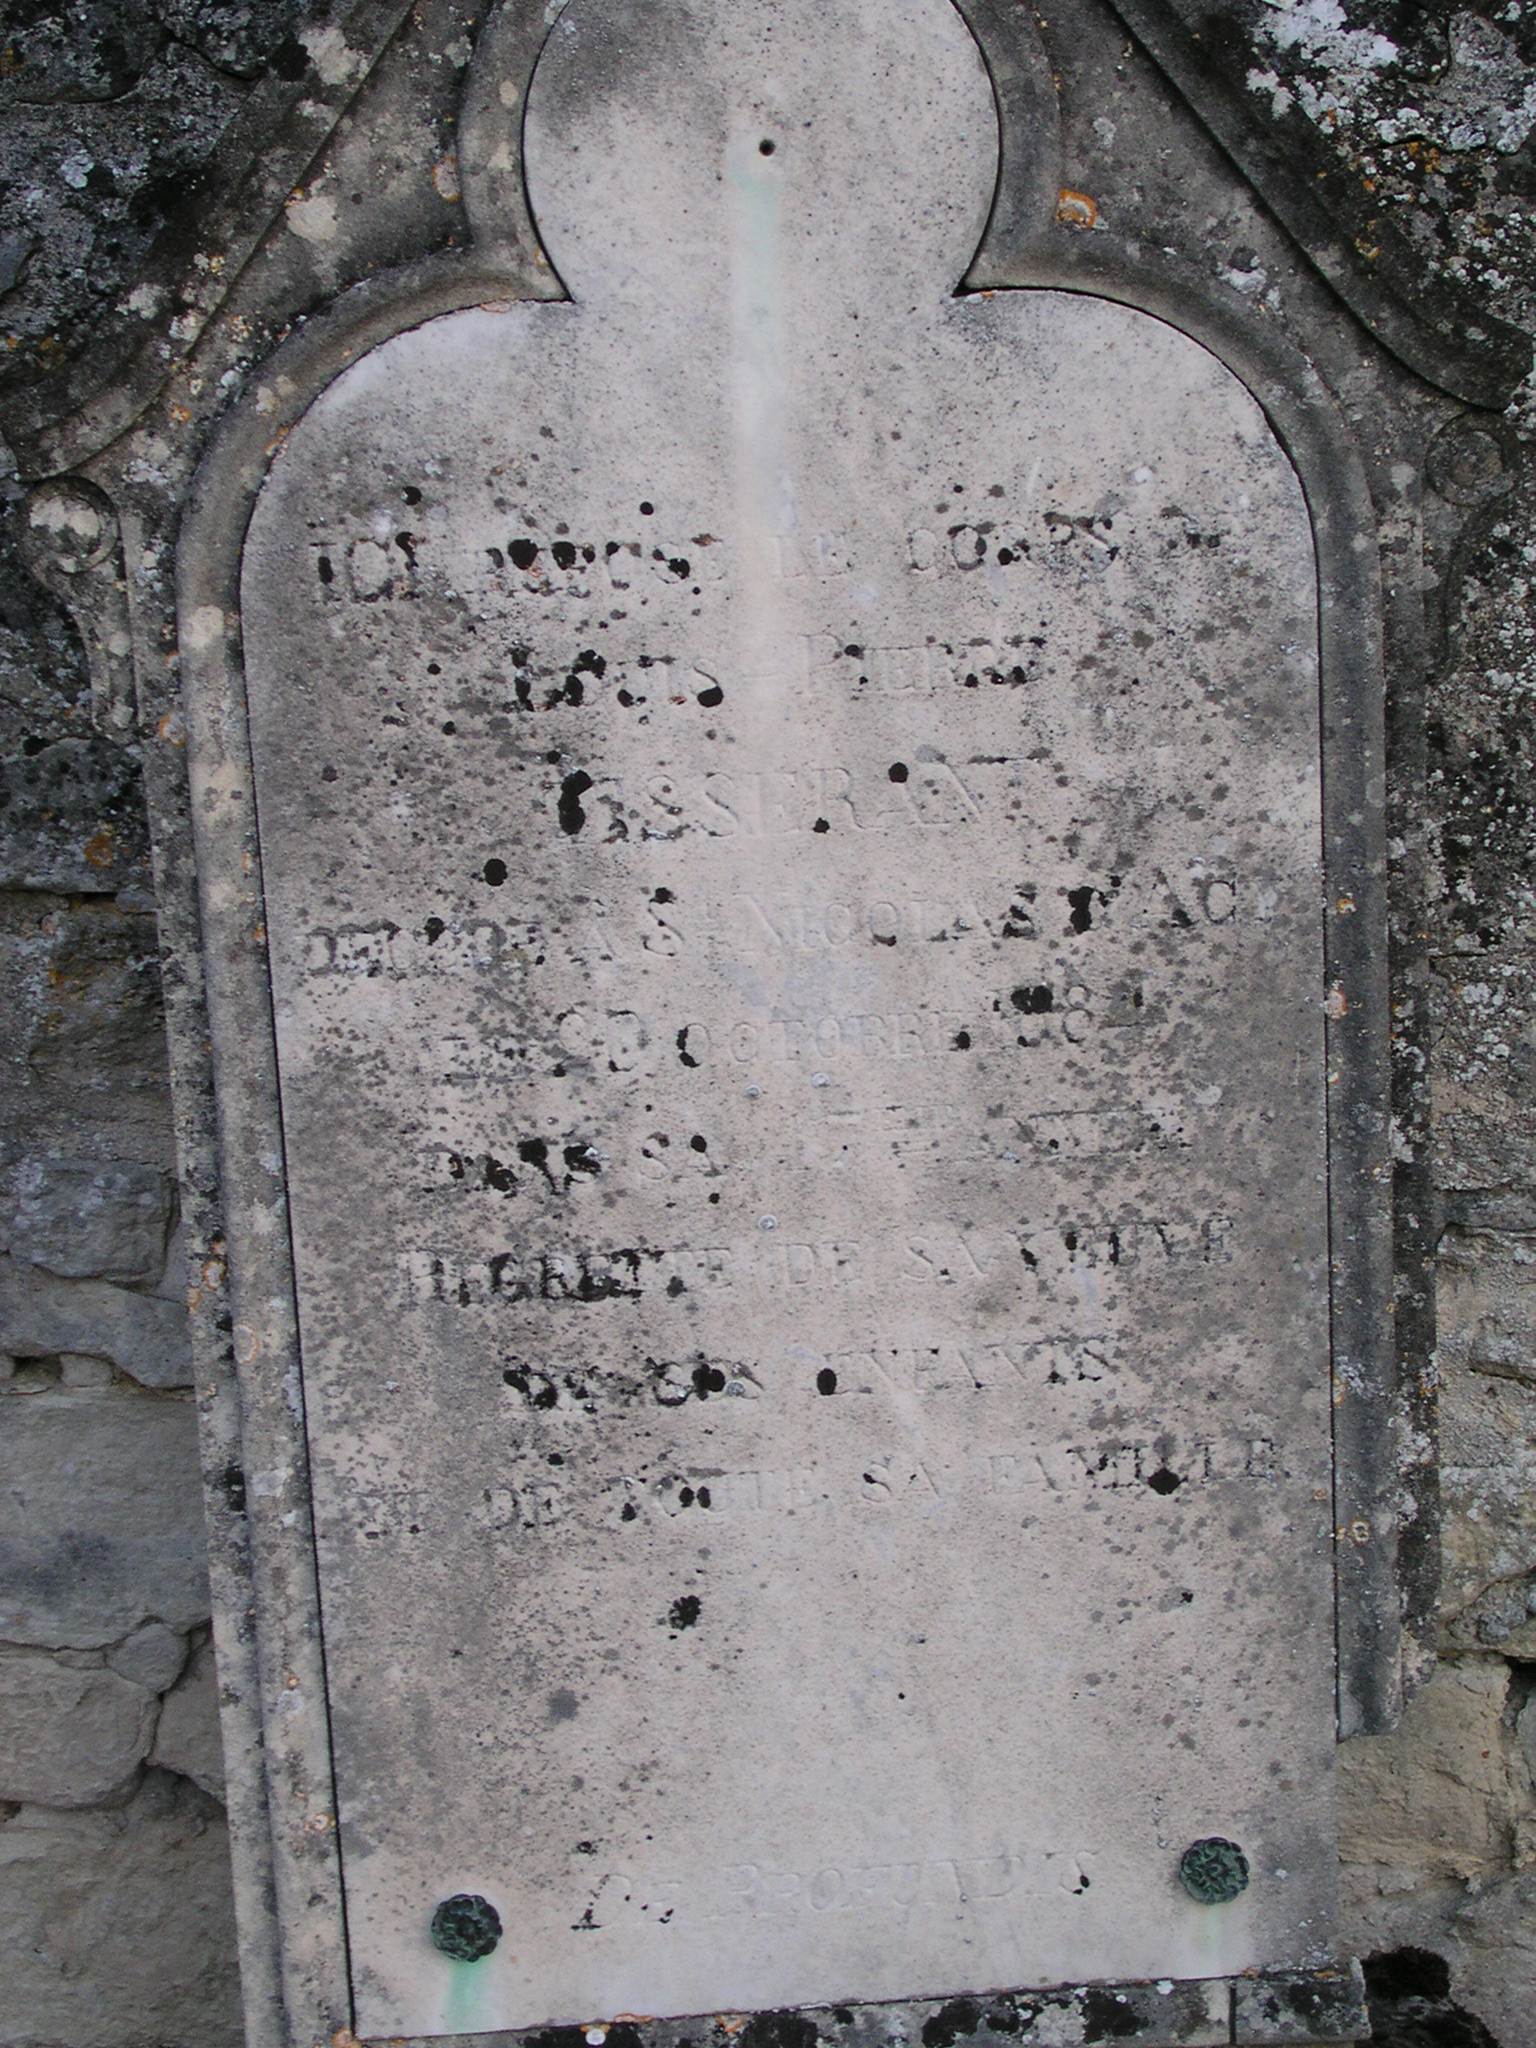 ICI REPOSE LE CORPS DE
LOUIS - PIERRE
TISSERANT
DECEDE A St NICOLAS D'ACY
LE OCTOBRE
DANS SA ANNEE
REGRETTE DE SA VEUVE
DE SES ENFANTS
ET DE TOUTE SA FAMILLE
DE PROFUNDIS